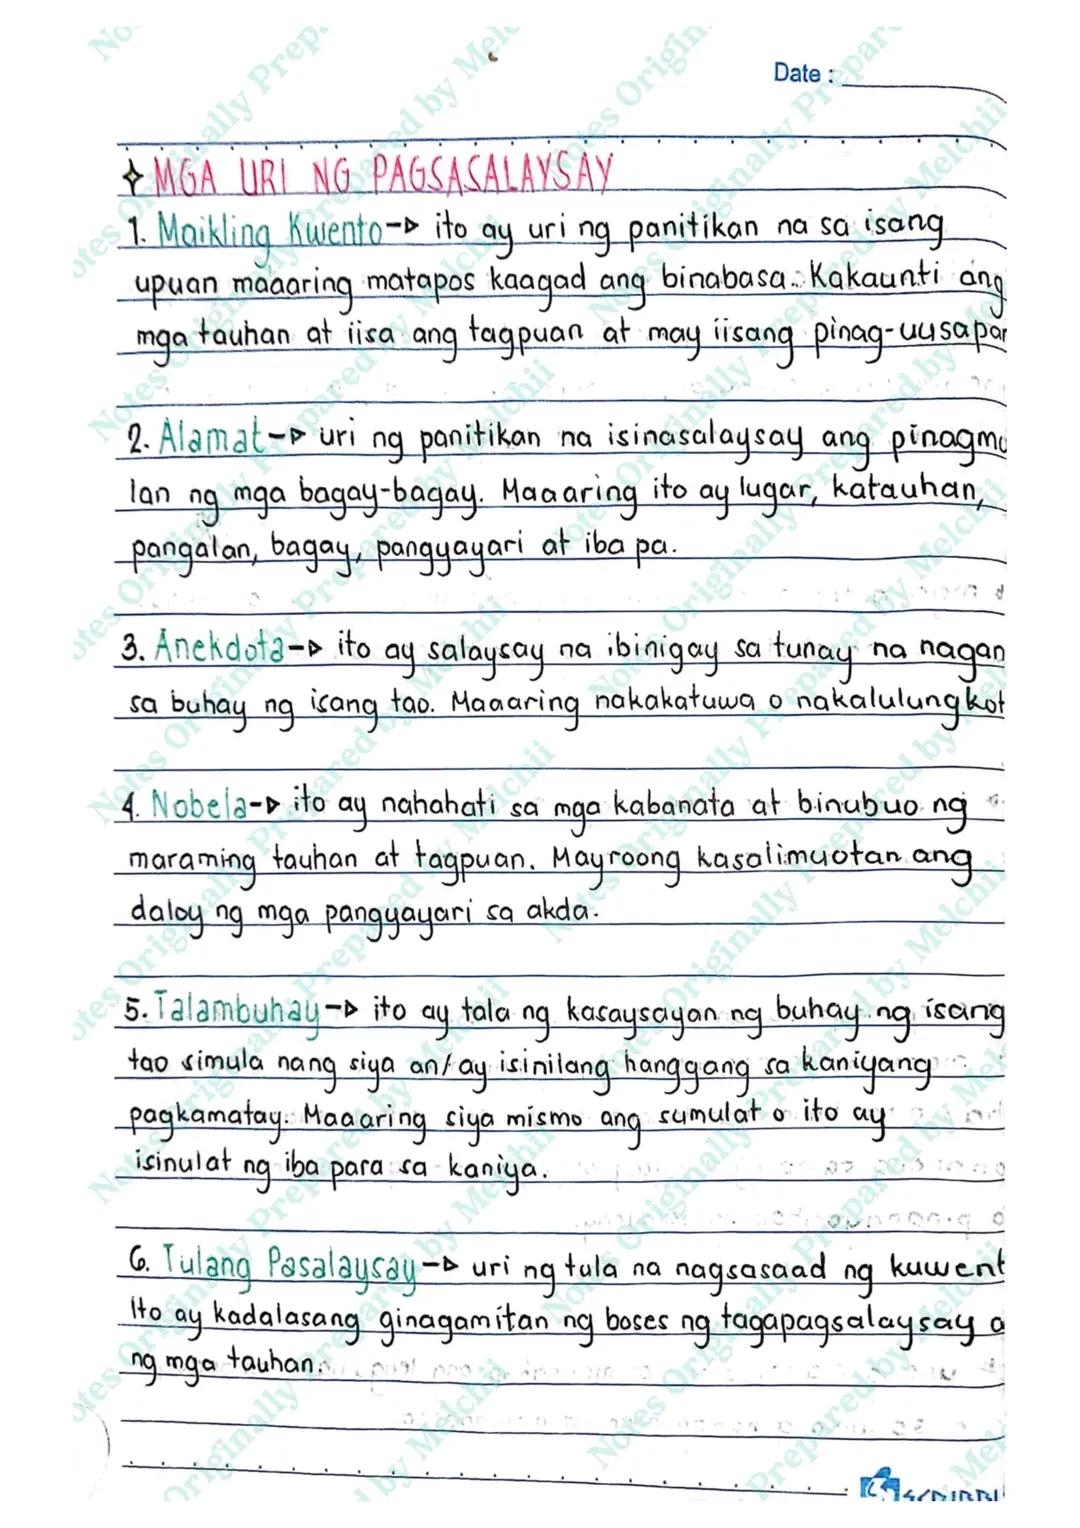 Date :
MGA URI NG PAGSASALAYSAY
1. Maikling Kwento-> ito ay uri ng panitikan na sa isang
upuan maaaring matapos kaagad ang binabasa. Kakaunti ang
mga tauhan at iisa ang tagpuan at may iisang pinag-uusapan
2. Alamat-> uri ng panitikan na isinasalaysay ang pinagmu
lan ng mga bagay-bagay. Maaaring ito ay lugar, katauhan,
pangalan, bagay, pangyayari at iba pa.
3. Anekdota-> ito ay salaysay na ibinigay sa tunay na nagan
sa buhay ng isang tao. Maaaring nakakatuwa o nakalulungkot
4. Nobela-> ito ay nahahati sa mga kabanata at binubuo ng
maraming tauhan at tagpuan. Mayroong kasalimuotan ang
daloy ng mga pangyayari sa akda.
5. Talambuhay-> ito ay tala ng kasaysayan ng buhay ng isang
tao simula nang siya an/ay isinilang hanggang sa kaniyang
pagkamatay. Maaaring siya mismo ang sumulat o ito ay
isinulat ng iba para sa kaniya.
6. Tulang Pasalaysay-> uri ng tula na nagsasaad ng kuwent
Ito ay kadalasang ginagamitan ng boses ng tagapagsalaysay a
ng mga tauhan.
Notes Originally Prepared by Melchii